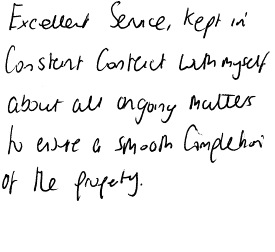 Excellent Service, kept in
Constant Contact with myself
about all ongoing matters
to ensure a smooth Completion
of the property.